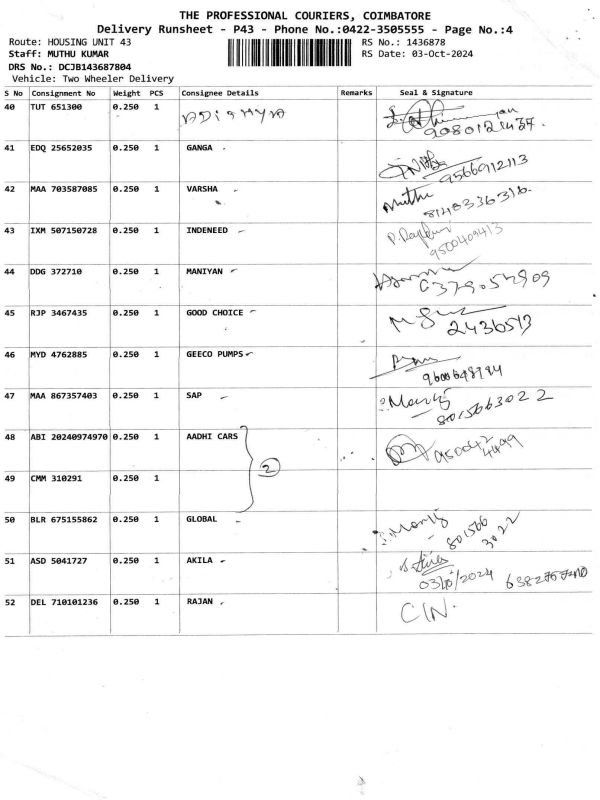 THE PROFESSIONAL COURIERS, COIMBATORE
Delivery Runsheet - P43 - Phone No.:0422-3505555 - Page No.:4
Route: HOUSING UNIT 43 RS No.: 1436878
Staff: MUTHU KUMAR RS Date: 03-Oct-2024
DRS No.: DCJB143687804
Vehicle: Two Wheeler Delivery
S No Consignment No Weight PCS Consignee Details Remarks Seal & Signature
40 TUT 651300 0.250 1
41 EDQ 25652035 0.250 1 GANGA
9566912113
42 MAA 703587085 0.250 1 VARSHA Muthu
8148336316
43 IXM 507150728 0.250 1 INDENEED
9500409413
44 DDG 372710 0.250 1 MANIYAN
45 RJP 3467435 0.250 1 GOOD CHOICE
46 MYD 4762885 0.250 1 GEECO PUMPS
47 MAA 867357403 0.250 1 SAP
8015663022
48 ABI 20240974970 0.250 1 AADHI CARS
95004 2
4499
2
49 CMM 310291 0.250 1
50 BLR 675155862 0.250 1 GLOBAL
801566
3022
51 ASD 5041727 0.250 1 AKILA
03/10/2024
52 DEL 710101236 0.250 1 RAJAN